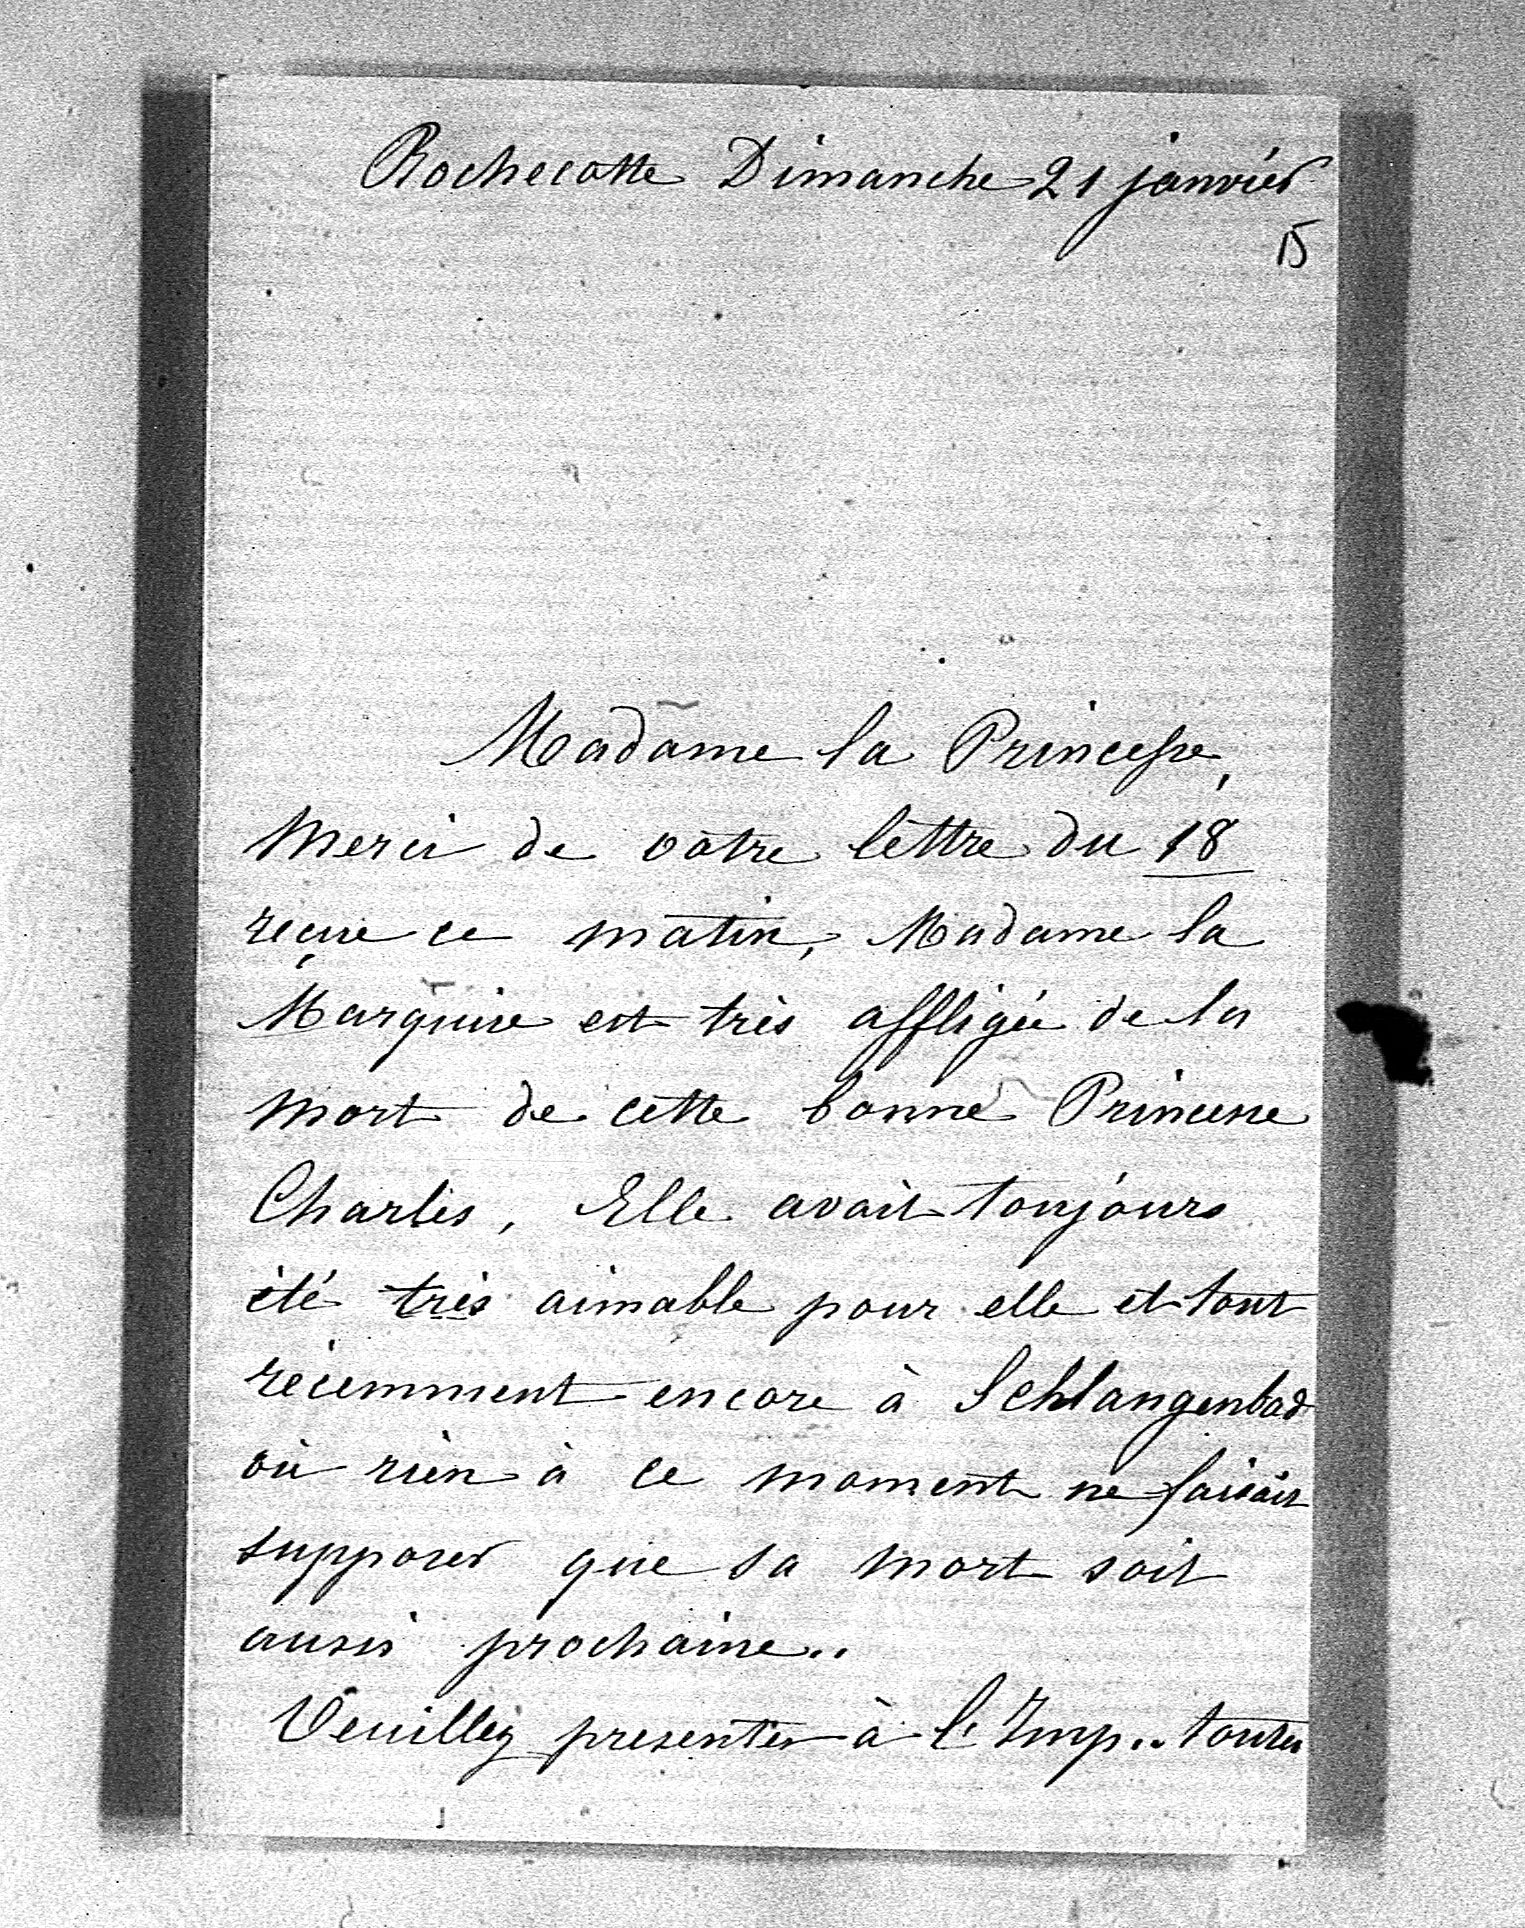 Rochecotte Dimanche 21 janvier
15
Madame la Princesse,
Merci de votre lettre du 18
reçue ce matin, Madame la
Marquise est très affligée de la
mort de cette bonne Princesse
Charles, Elle avait toujours
été très aimable pour elle et tout
récemment encore à Schlangenbad
où rien à ce moment ne faisait
supposer que sa mort soit
aussi prochaine..
Veuillez presenter à l'Imp.. toutes